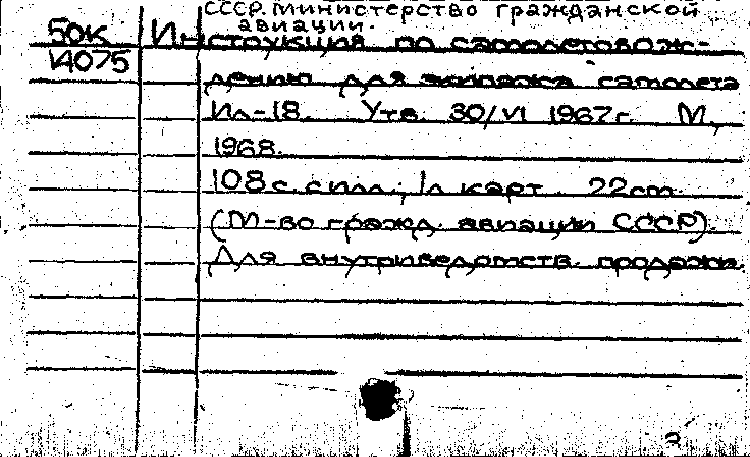 СССР. Министерство гражданской
авиации.
50К Инструкция по самолетовож-
14075 дению для экипажа самолета
Ил-18. Утв. 30/VI 1967г. М.,
1968.
108 с. с илл.; 1 л карт. 22см.
(М-во гражд. авиации СССР).
Для внутриведомств. продажи.